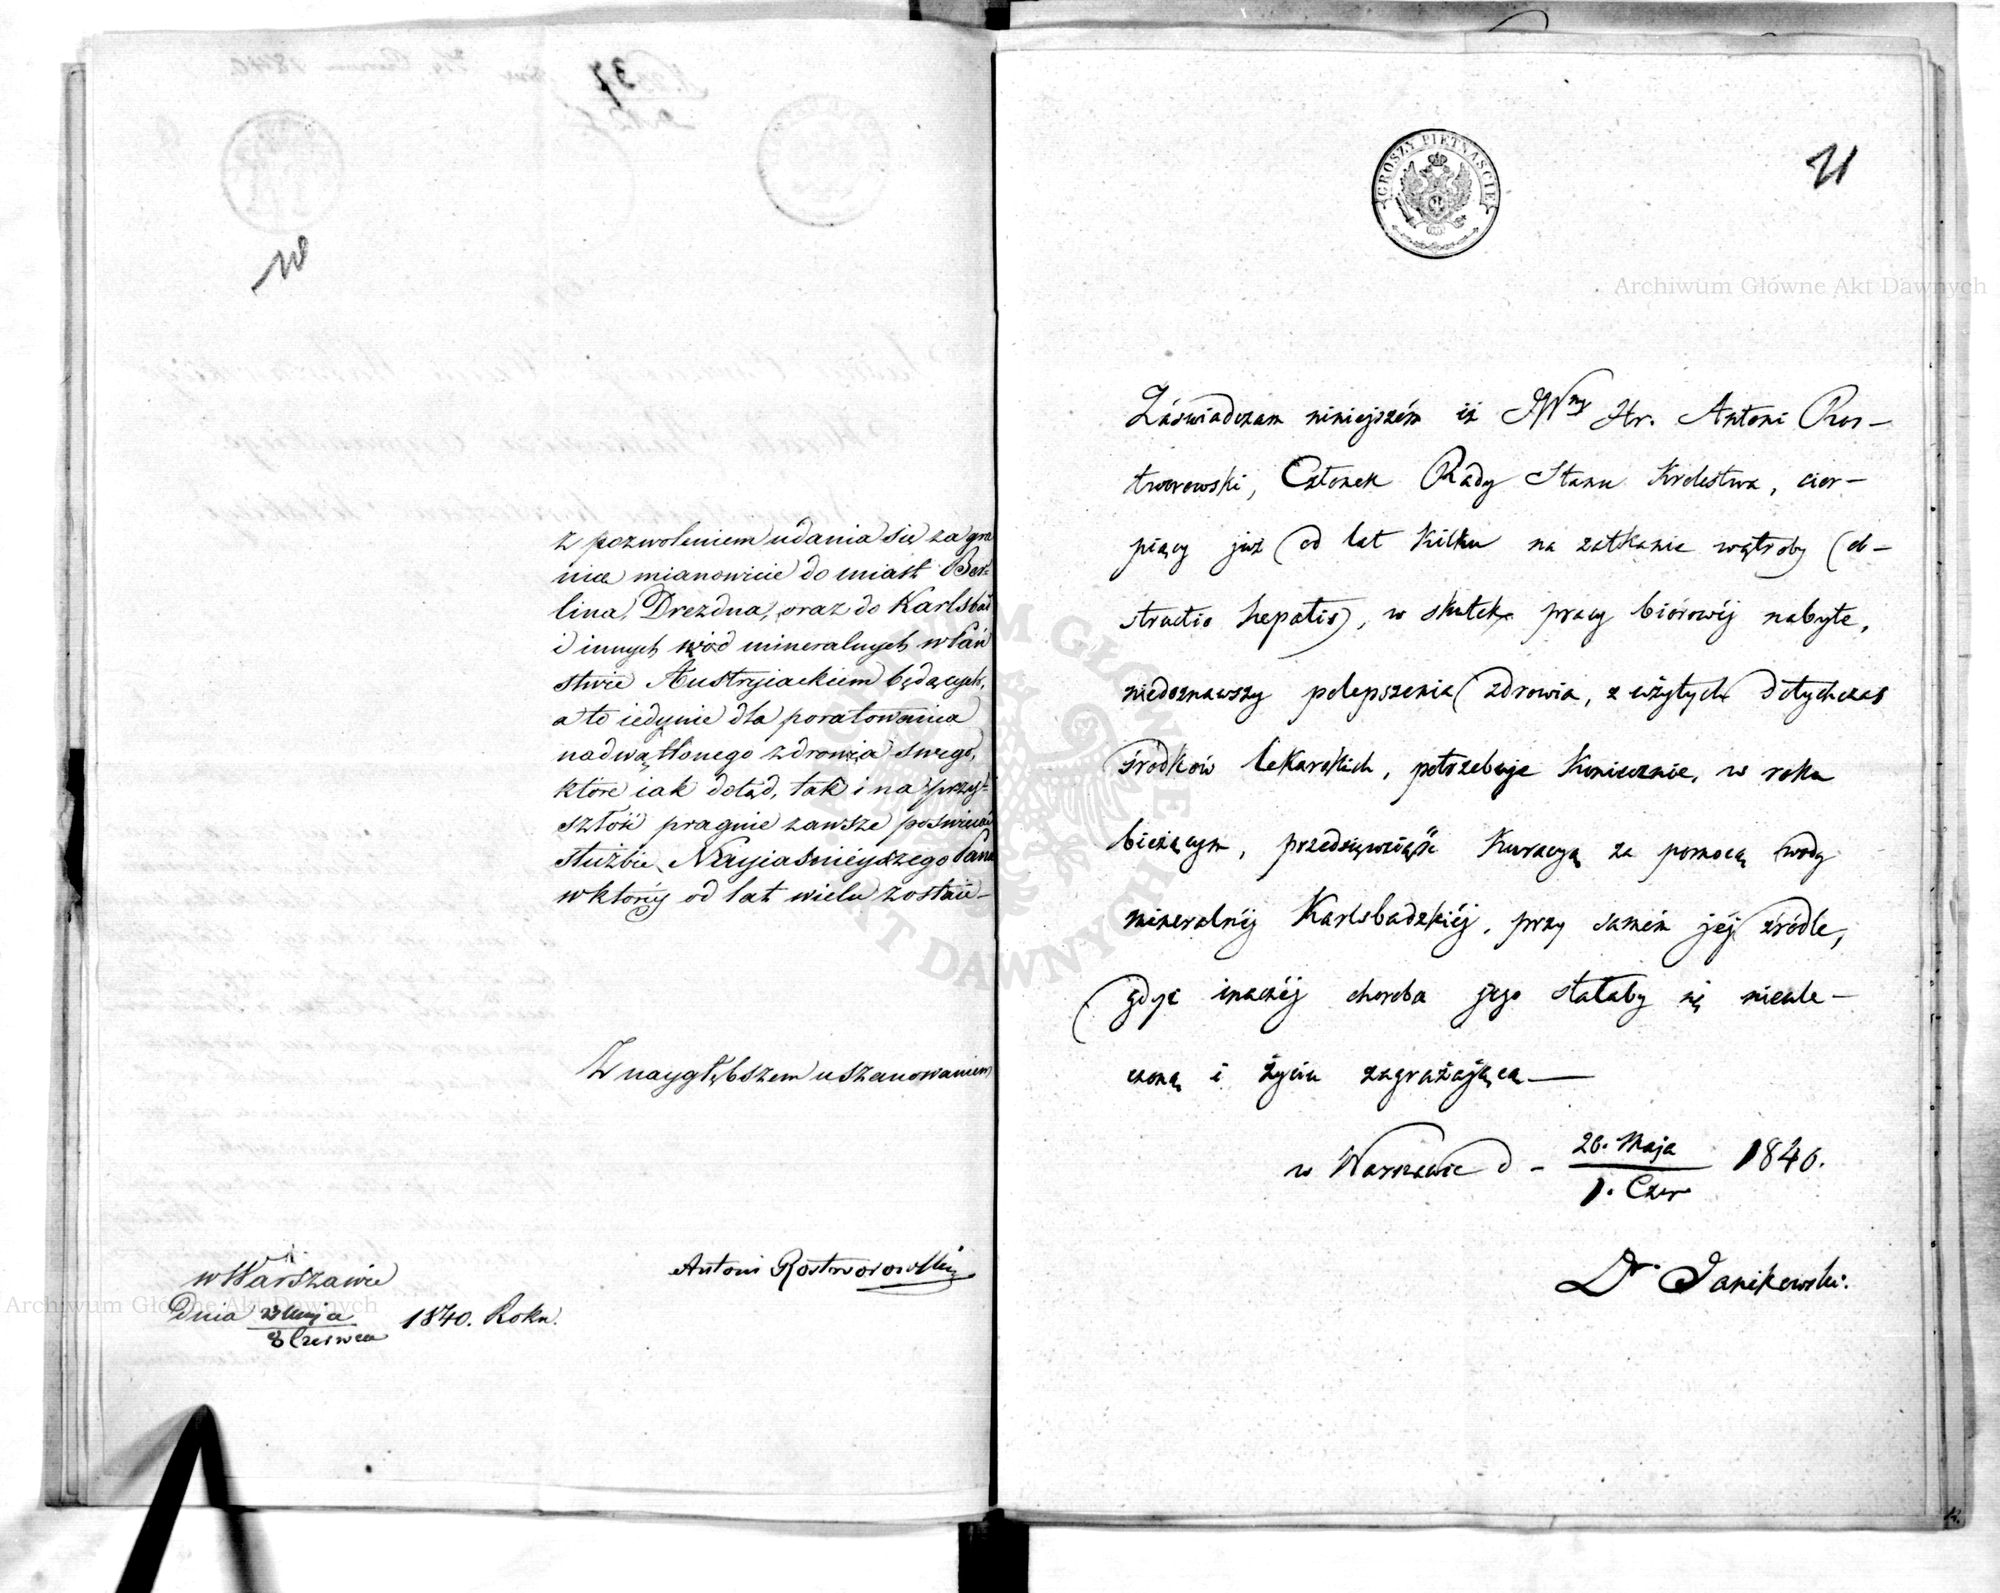 37
z pozwoleniem udania się za gra
nicę mianowicie do miast Ber=
lina, Drezdna, oraz do Karlsbad
i innych wód mineralnych w Pań
stwie Austryiackiem będących,
a to iedynie dla poratowania
nadwątlonego zdrowia swego,
które iak dotąd, tak i na przy=
szłość pragnie zawsze poświęcać
służbie Nayiaśnieyszego Pana
w któréy od lat wielu zostaie –
Z naygłębszem uszanowaniem
Antoni Rostworowski
w Warszawie
Dnia 23 Maja
8 Czerwca 1840. Roku.
GROSZY PIĘTNAŚCIE
Zaświadczam niniejszém iż JWny Hr. Antoni Ros–
tworowski, Członek Rady Stanu Królestwa, cier–
piący już od lat kilku na zatkanie wątroby (ob–
structio hepatis), w skutek pracy biórowéj nabyte,
niedoznawszy polepszenia zdrowia, z użytych dotychczas
środków lekarskich, potrzebuje koniecznie, w roku
bieżącym, przedsięwziąść kuracyą za pomocą wody
mineralnéj Karlsbadzkiéj, przy samém jéj źródle,
gdyż inaczéj choroba jego stałaby się nieule–
czoną i życiu zagrażającą —
w Warszawie d – 20. Maja
1. Czer 1840.
Dr Janikowski.
Archiwum Główne Akt Dawnych
Archiwum Główne Akt Dawnych